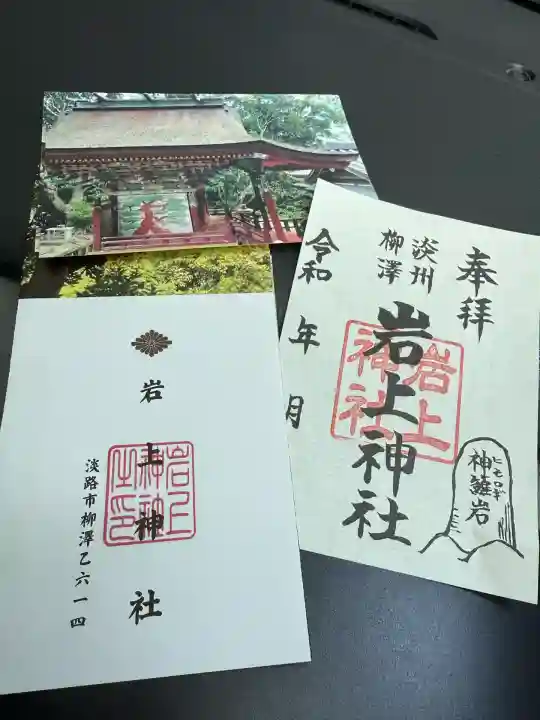 奉拝
淡州
柳澤
岩上神社
岩上
神社
令和 年 月
ヒモロギ
神籬岩
岩上神社
淡路市柳澤乙六一四